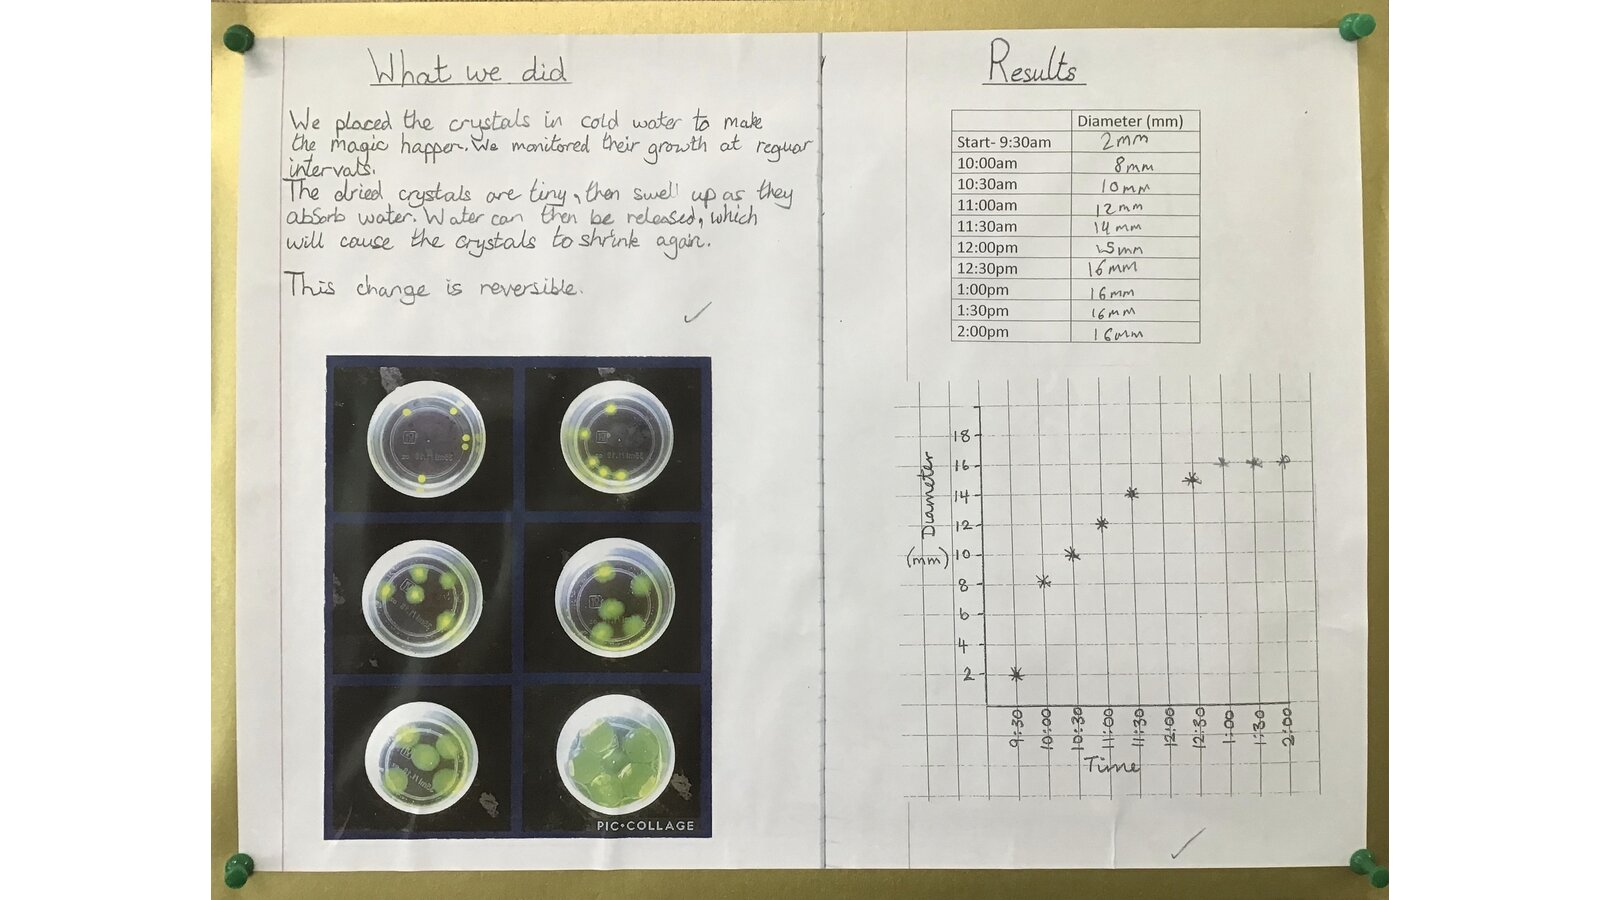 What we did
We placed the crystals in cold water to make
the magic happen. We monitored their growth at reguar
intervals.
The dried crystals are tiny, then swell up as they
absorb water. Water can then be released, which
will cause the crystals to shrink again.
This change is reversible.
PIC•COLLAGE
Results
Diameter (mm)
Start- 9:30am 2mm
10:00am 8mm
10:30am 10mm
11:00am 12mm
11:30am 14mm
12:00pm 15mm
12:30pm 16mm
1:00pm 16mm
1:30pm 16mm
2:00pm 16mm
Diameter
(mm)
18
16
14
12
10
8
6
4
2
9:30 10:00 10:30 11:00 11:30 12:00 12:30 1:00 1:30 2:00
Time